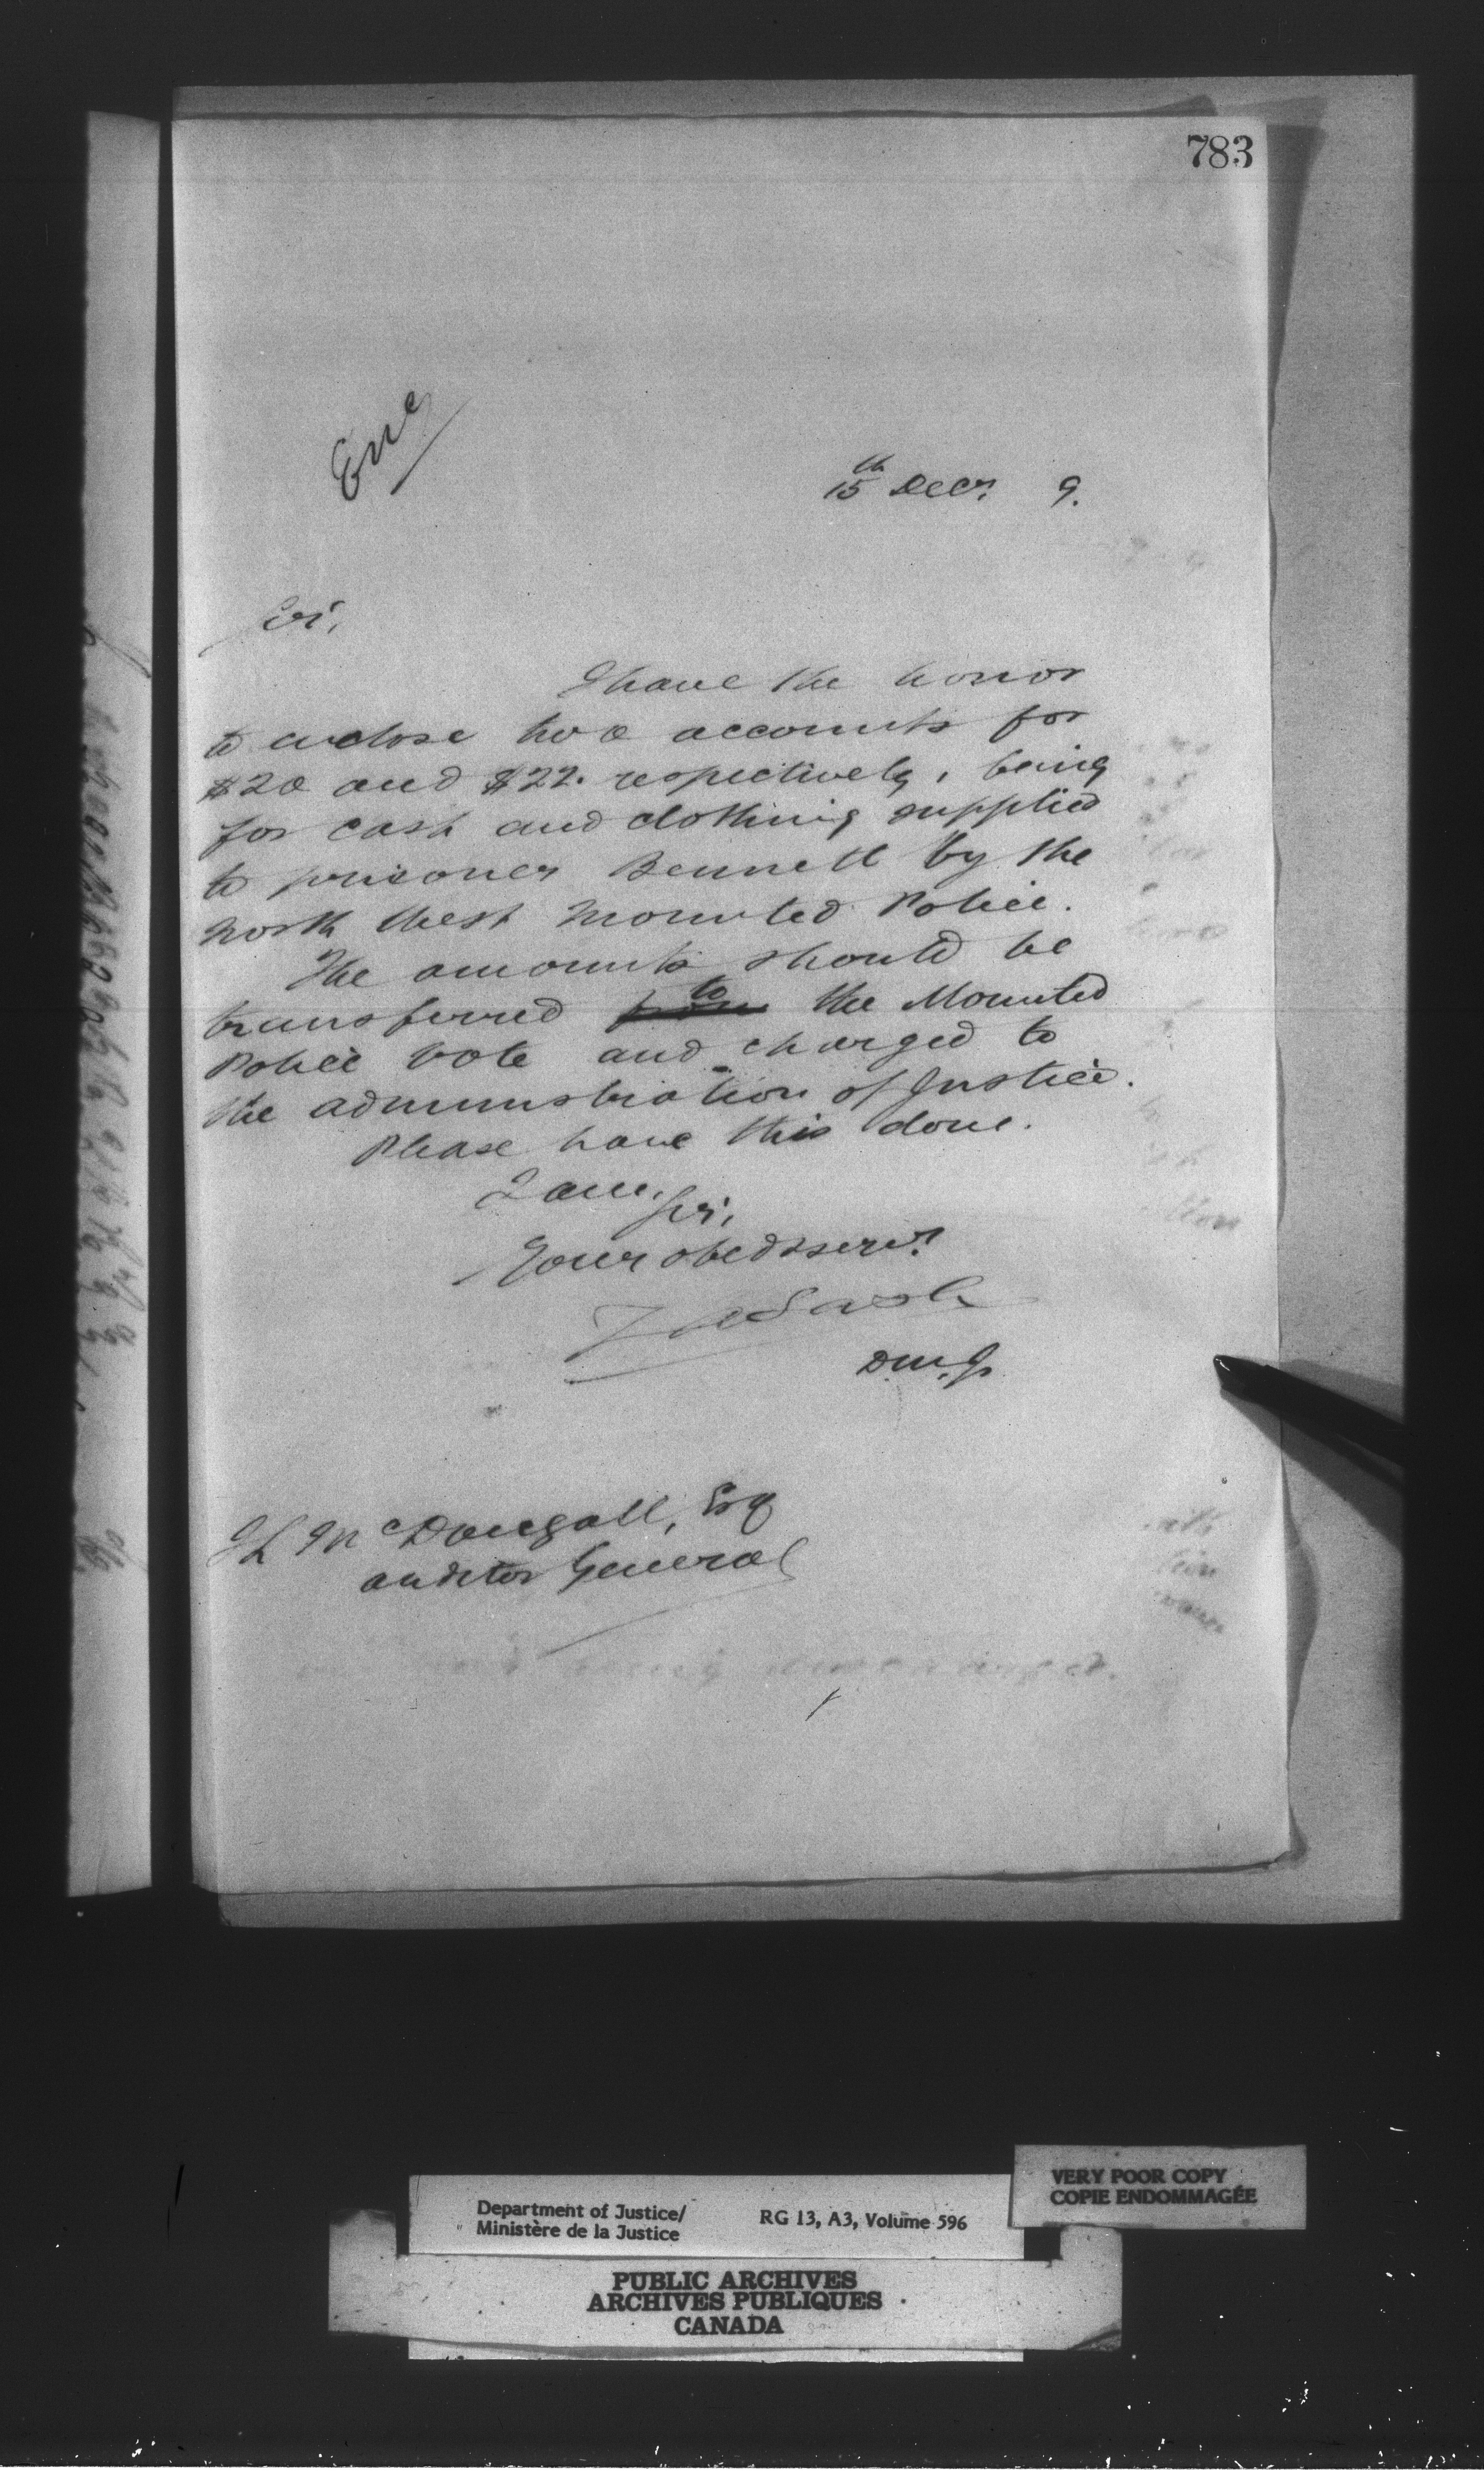 783
Enc
15th Decr. 9.
Sir,
I have the honor
to enclose two accounts for
$20 and $22. respectively, being
for cash and clothing supplied
to prisoner Bennett by the
North West Mounted Police.
The amounts should be
to
transferred from the Mounted
Police vote and charged to
the administration of Justice.
Please have this done.
I am, Sir,
Your obedt servt
Z A Lash
D.M.J.
J L McDougall, Esq
Auditor General
VERY POOR COPY
COPIE ENDOMMAGÉE
Department of Justice/
Ministère de la Justice
RG 13, A3, Volume 596
PUBLIC ARCHIVES
ARCHIVES PUBLIQUES
CANADA